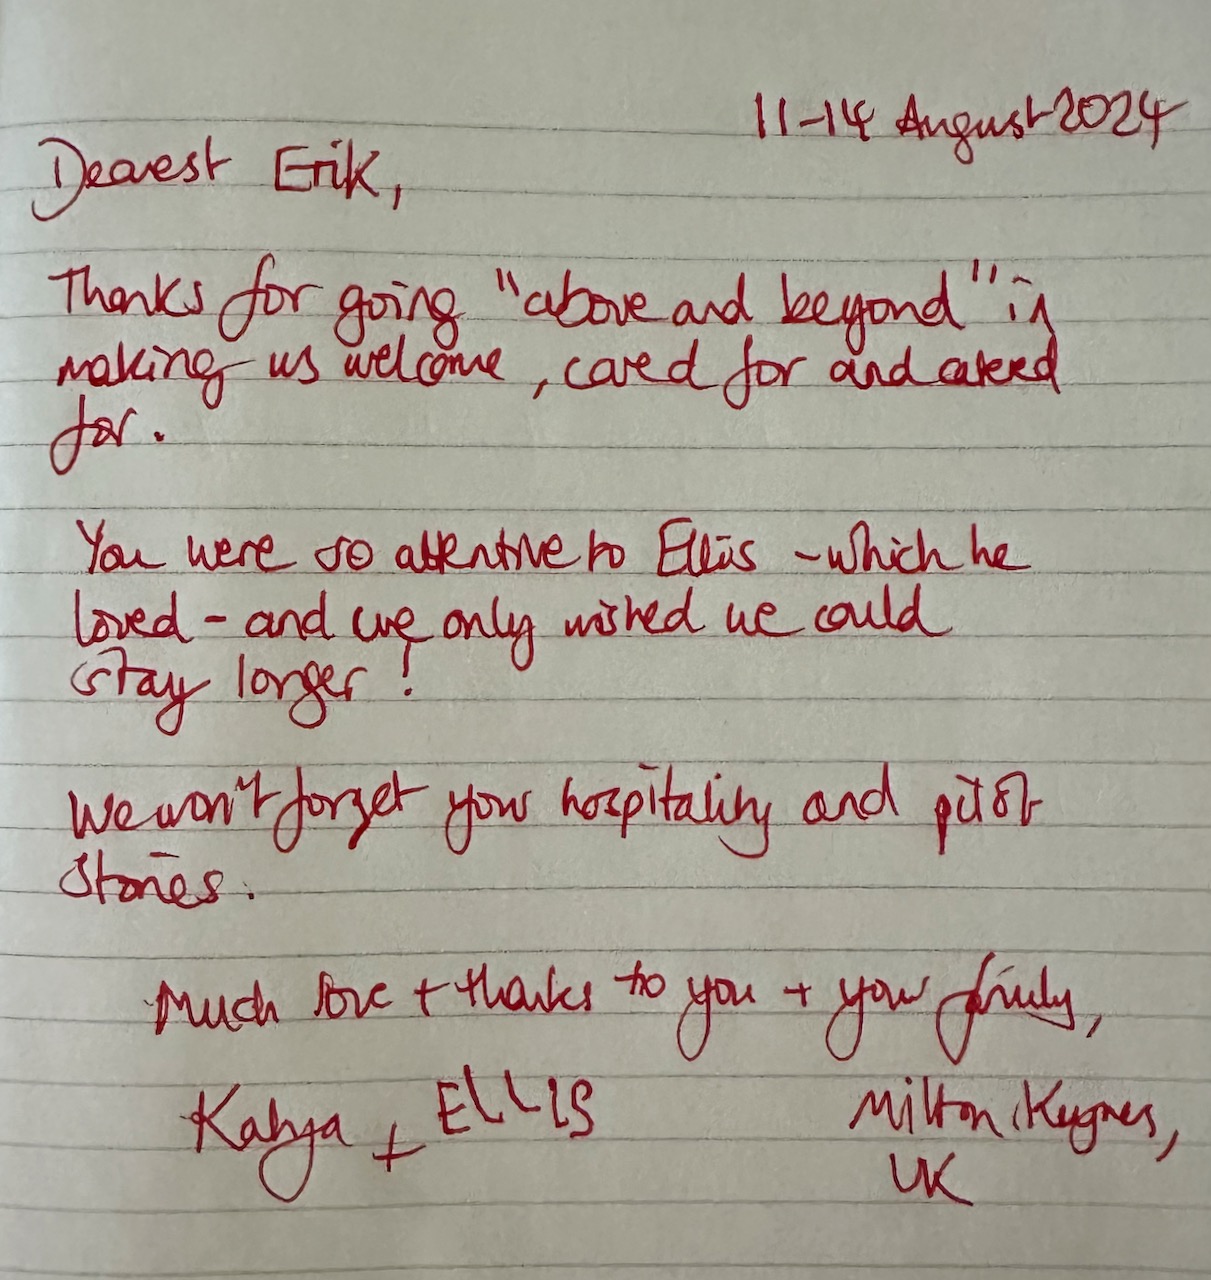 11-14 August 2024
Dearest Erik,
Thanks for going "above and beyond" in
making us welcome, cared for and catered
for.
You were so attentive to Ellis - which he
loved - and we only wished we could
stay longer!
We won't forget your hospitality and pilot
stories.
Much love + thanks to you + your family,
Katya + ELLIS
Milton Keynes,
UK